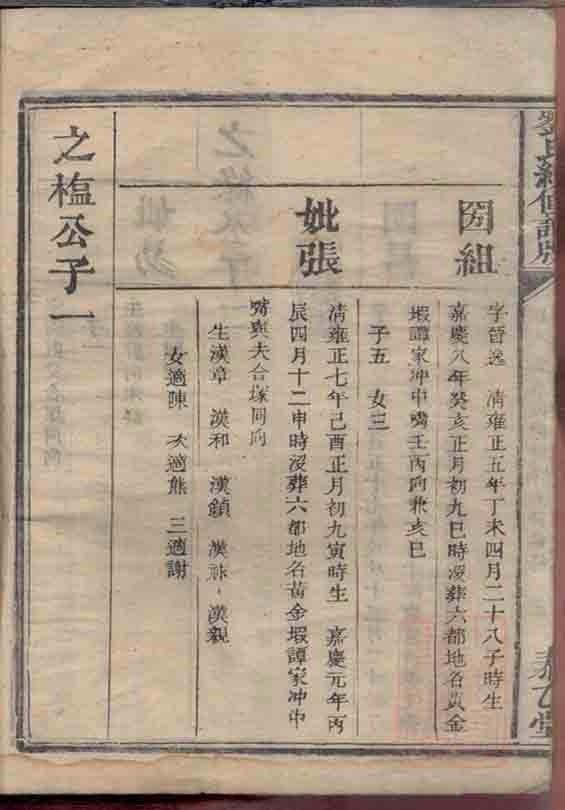 劉氏續修譜牒
泰乙堂
囡組
字晉逸 清雍正五年丁未四月二十八子時生
嘉慶八年癸亥正月初九巳時沒葬六都地名黃金
塅譚家冲中嘴壬丙向兼亥巳
子五 女三
妣張
清雍正七年己酉正月初九寅時生 嘉慶元年丙
辰四月十二申時沒葬六都地名黃金塅譚家冲中
嘴與夫合塚同向
生漢章 漢和 漢鎮 漢 漢親
女適陳 次適熊 三適謝
之榲公子一